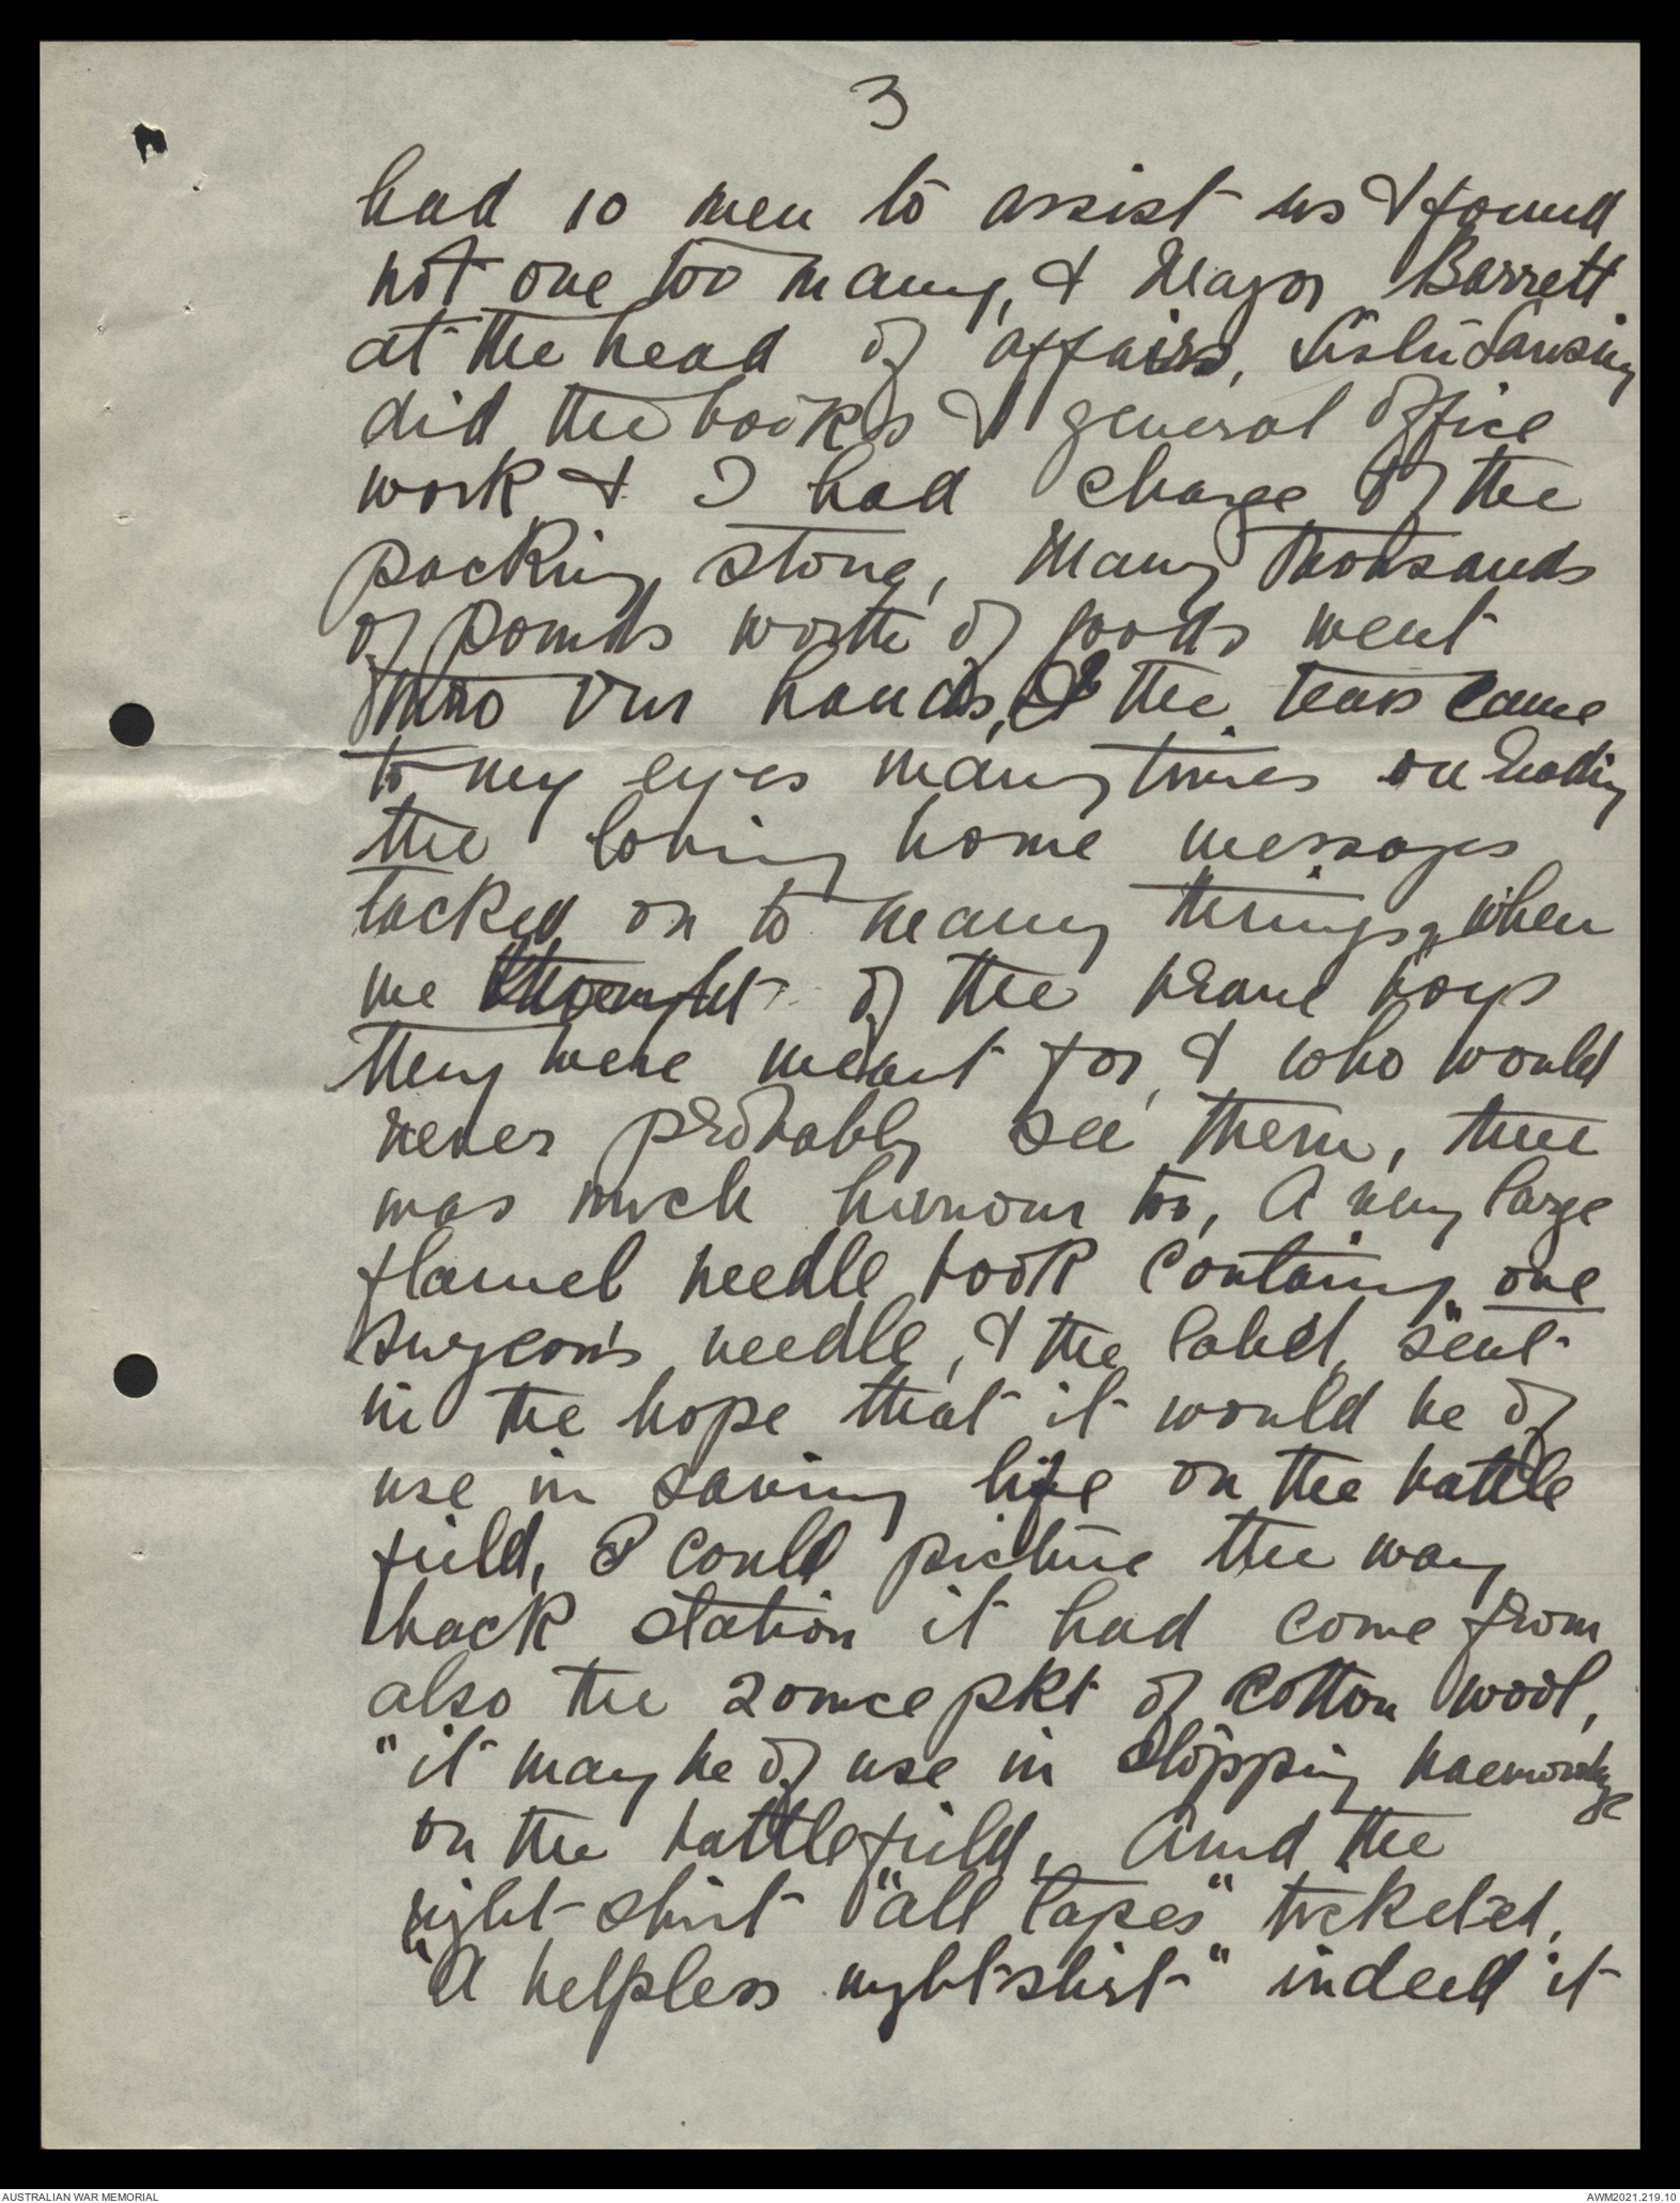 3
had 10 men to assist us & found
not one too many, & Major Barrett
at the head of affairs, Sister Lansing
did the books & general office
work & I had charge of the
packing, store, Many thousands
of pounds worth of goods went
thro our hands, & the tears came
to my eyes many times on reading
the loving home messages
tacked on to many things, when
we thought of the brave boys
they were meant for, & who would
never probably see them, there
was much humour too, A very large
flannel needle book containing one
surgeon's needle, & the label, "sent
in the hope that it would be of
use in saving life on the battle
field, I could picture the way
back station it had come from
also the 2 ounce pkt of cotton wool,
"it may be of use in stopping haemorrhage
on the battlefield, And the
night-shirt "all tapes" ticketed,
"A helpless nightshirt" indeed it
AUSTRALIAN WAR MEMORIAL
AWM2021.219.10